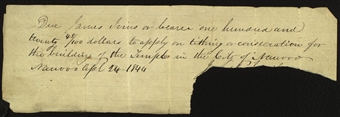 Due James Ivins or bearer one hundred and
twenty 47/100 dollars to apply on tithing or consecration for
the building of the Temple in the City of Nauvoo
Nauvoo Apl 24 1844